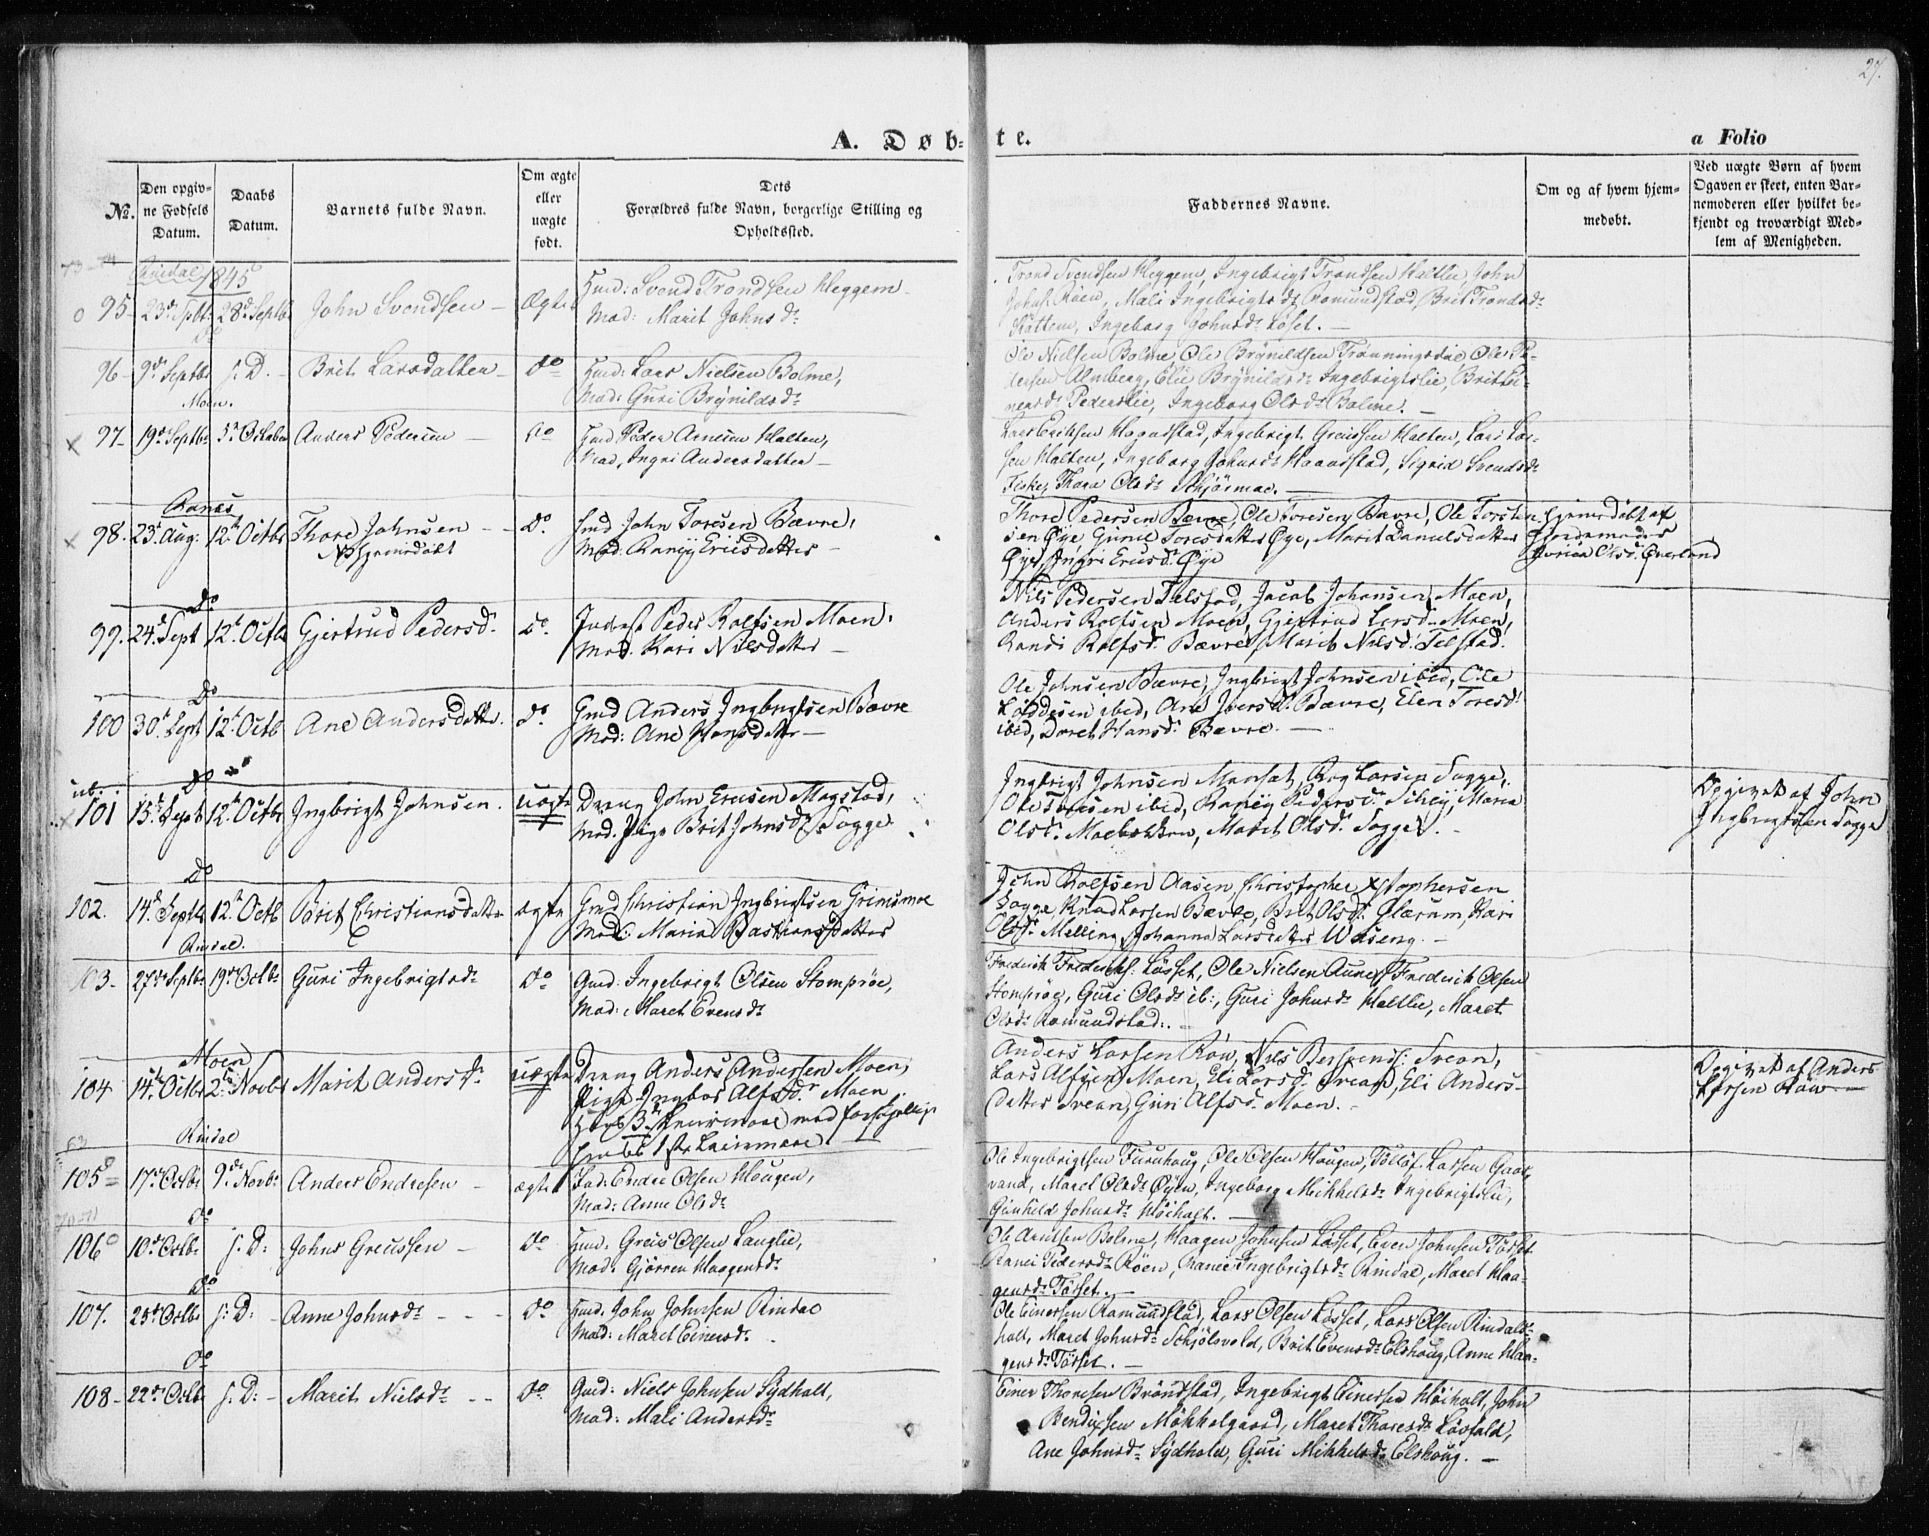 27.
A. Døb-
te.
a Folio
No.
Den opgiv-
ne Fødsels
Datum.
Daabs
Datum.
Barnets fulde Navn.
Om ægte
eller
uægte
født.
Dets
Forældres fulde Navn, borgerlige Stilling og
Opholdssted.
Faddernes Navne.
Om og af hvem hjem-
medøbt.
Ved uægte Børn af hvem
Opgaven er skeet, enten Bar-
nemoderen eller hvilket be-
kjendt og troværdigt Med-
lem af Menigheden.
Rindal 1845
95 - 23de Sptbr 28de Septbr John Svendsen - Ægte Gmd: Svend Trondsen Heggem
Mad: Marit Johnsdr
Trond Svendsen Heggem, Ingebrigt Trondsen Haltlie, John
Johns. Röen, Mali Ingebrigtsdr Romundstad, Brit Trondsdr
Kattem, Ingeborg Johnsdr Løset. -
do
96 - 9de Septbr s: D. - Brit Larsdatter - do Gmd: Lars Nielsen Bolme,
Mad: Guri Brynildsdr
Ole Nielsen Bolme, Ole Brynildsen Trønningsdal, Ole Pe-
dersen Almberg, Elie Brynildsdr Ingebrigtslie, Brit Ei-
nersdr Pederslie, Ingeborg Olsdr Bolme. -
Moen.
x 97 - 19de Septbr 5te October Anders Pedersen - do Gmd Peder Arnesen Halten,
Mad, Ingri Andersdatter -
Lars Eriksen Haandstad, Ingebrigt Greussen Halten, Lars Lar-
sen Halten, Ingeborg Johnsdr Haandstad, Sigrid Svendsdr
Fiske, Thora Olsdr Schjörmoe. -
Ranes
x 98. 23t Aug: 12te Octbr Thore Johnsen - - Do. Gmd John Toresen Bævre,
NB Hjemdøbt
Mod: Ranøy Ericsdatter -
Thore Pedersen Bævre, Ole Toresen Bævre, Ole Torsten-
sen Øye, Gunil Toresdatter Øye, Marit Danielsdatter
Øye, Ingri Ericsd. Øye
Hjemdøbt af
Gjordemoder
Olsd. Øverland
Do
99. 24. Sept 12te Octbr Gjertrud Pedersd. Do. Inderst Peder Rolfsen Moen.
Mod. Kari Nilsdatter -
Nils Pedersen Telstad, Jacob Johansen Moen,
Anders Rolfsen Moen, Gjertrud Larsd. Moen,
Randi Rolfsd. Bævre, Marit Nilsd. Telstad.
Do
100 30t Sept 12te Octb Ane Andersdatter. do. Gmd Anders Ingbrigtsen Bævre
Mod: Ane Hansdatter -
Ole Johnsen Bævre, Ingbrigt Johnsen ibid, Ole
Loddesen ibid, Ane Iversd. Bævre, Elen Toresd.
ibid, Doret Hansd. Bævre. -
Do
101 15te Sept 12te Octbr Ingbrigt Johnsen. uægte Dreng John Ericsen Magstad,
Mod. Pige Brit Johnsd. Sogge.
Ingbrigt Johnsen Mansæt, Roy Larsen Sogge,
Ole Toresen ibid, Ranøy Pedersd. Schey, Maria
Olsd. Moebakken, Marit Olsd. Sogge. -
Opgivet af John
Ingbrigtsen Sogge
Do
102. 14. Septbr 12te Octb Brit Christiansdatter ægte Gmd Christian Ingbrigtsen Grimsmoe
Mod: Maria Bastiansdatter
John Rolfsen Aasen, Christopher Xstophersen
Sogge, Knud Larsen Bævre, Brit Olsd. Glærum, Kari
Olsd. Melling, Johanna Larsdatter Waseng. -
Rindal.
103 - 27de Septbr 19de Octbr Guri Ingebrigtsdr do Gmd: Ingebrigt Olsen Stomprøe,
Mad: Maret Evensdr
Frederik Frederiks: Løsset, Ole Nielsen Aunes, Frederik Olsen
Stomprøe, Guri Olsdr ib:, Guri Johnsdr Haltlie, Maret
Olsdr Romundstad. -
Moen
104 14te Octbr 2. Novbr Marit Andersdr uægte Dreng Anders Andersen Moen,
Pige Ingbor Alfsd. Moen
hans 3die Leiermaal med forskjellig
hendes 1ste Leiermaal.
Anders Larsen Røw, Nils Bersvends: Svean,
Lars Alfsen Moen, Eli Larsd. Svean, Eli Anders-
datter Svean, Guri Alfsd. Moen. -
Opgivet af Anders
Larsen Røw -
Rindal
105 - 17de Octbr 9de Novbr Anders Endresen - ægte Fad: Endre Olsen Haugen,
Mad: Anne Olsdr
Ole Ingebrigtsen Furuhoug, Ole Olsen Haugen, Tølløf Larsen Gaas-
vand, Maret Olsdr Øyen, Ingeborg Mikkelsdr Ingebrigtslie,
Gunhild Johnsdr Høiholt. -
do
106 10de Octbr s: D: Johns Greussen - do Gmd. Greus Olsen Langlie,
Mad: Gjørren Haagensdr
Ole Arntsen Bolme, Haagen Johnsen Løsset, Even Johnsen Tørset
Ranei Pedersdr Röen, Ranei Ingebrigtsdr Rindal, Maret Haa-
gensdr Tørset. -
do
107. 25de Octbr s: D: - Anne Johnsdr - - - do Gmd. John Johnsen Rindal
Mad: Maret Einersdr
Ole Einersen Romundstad, Lars Olsen Løsset, Lars Olsen Rindals-
holt, Maret Johnsdr Schjølsvold, Brit Evensdr Elshoug, Anne Haa-
gensdr Tørset. -
do
108 - 22de Octbr s: D: - Marit Nielsdr - - do Gmd: Niels Johnsen Sydhalt,
Mad: Mali Andersdr
Einer Thoresen Brøndstad, Ingebrigt Einersen Høiholt, John
Bendixsen Møkkelgaard, Maret Thoresdr Løsfald,
Ane Johnsdr Sydhald, Guri Mikkelsdr Elshoug. -